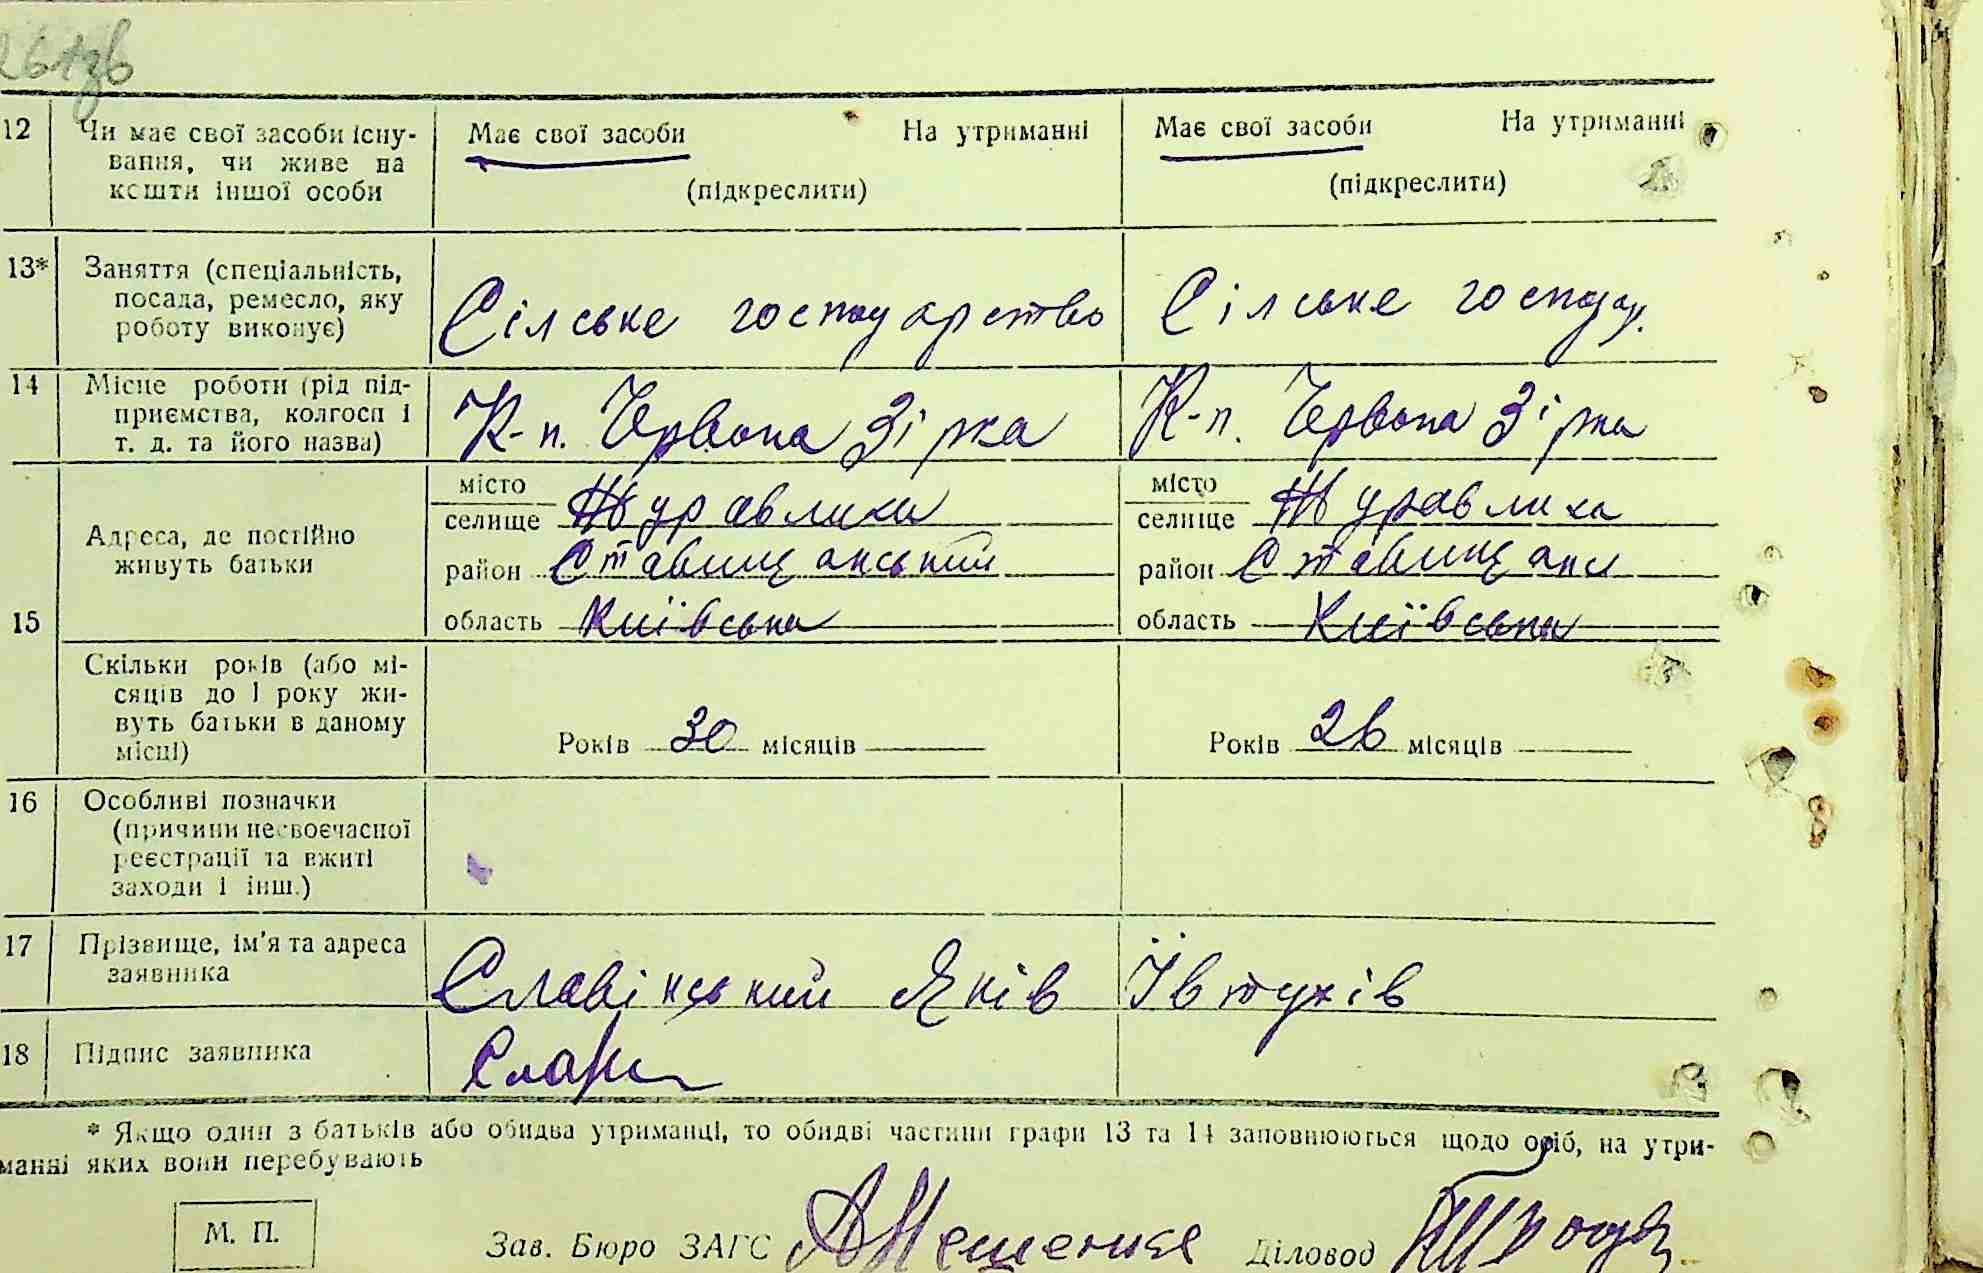 12 Чи має свої засоби існу- Має свої засоби На утриманні Має свої засоби На утриманні
вання, чи живе на
кошти іншої особи (підкреслити) (підкреслити)
13* Заняття (спеціальність,
посада, ремесло, яку Сілське господарство Сілське господар.
роботу виконує)
14 Місце роботи (рід під-
приємства, колгосп і К-п. Червона Зірка К-п. Червона Зірка
т. д. та його назва)
15 Адреса, де постійно живуть батьки
місто
селище Журавлиха
район Ставищанський
область Київська
місто
селище Журавлиха
район Ставищанс
область Київська
Скільки років (або мі-
сяців до 1 року жи-
вуть батьки в даному
місці) Років 30 місяців Років 26 місяців
16 Особливі позначки
(причини несвоєчасної
реєстрації та вжиті
заходи і інш.)
17 Прізвище, ім'я та адреса
заявника Славінський Яків Ївтухів
18 Підпис заявника
* Якщо один з батьків або обидва утриманці, то обидві частини графи 13 та 14 заповнюються щодо осіб, на утри-
манні яких вони перебувають
М. П. Зав. Бюро ЗАГС Діловод